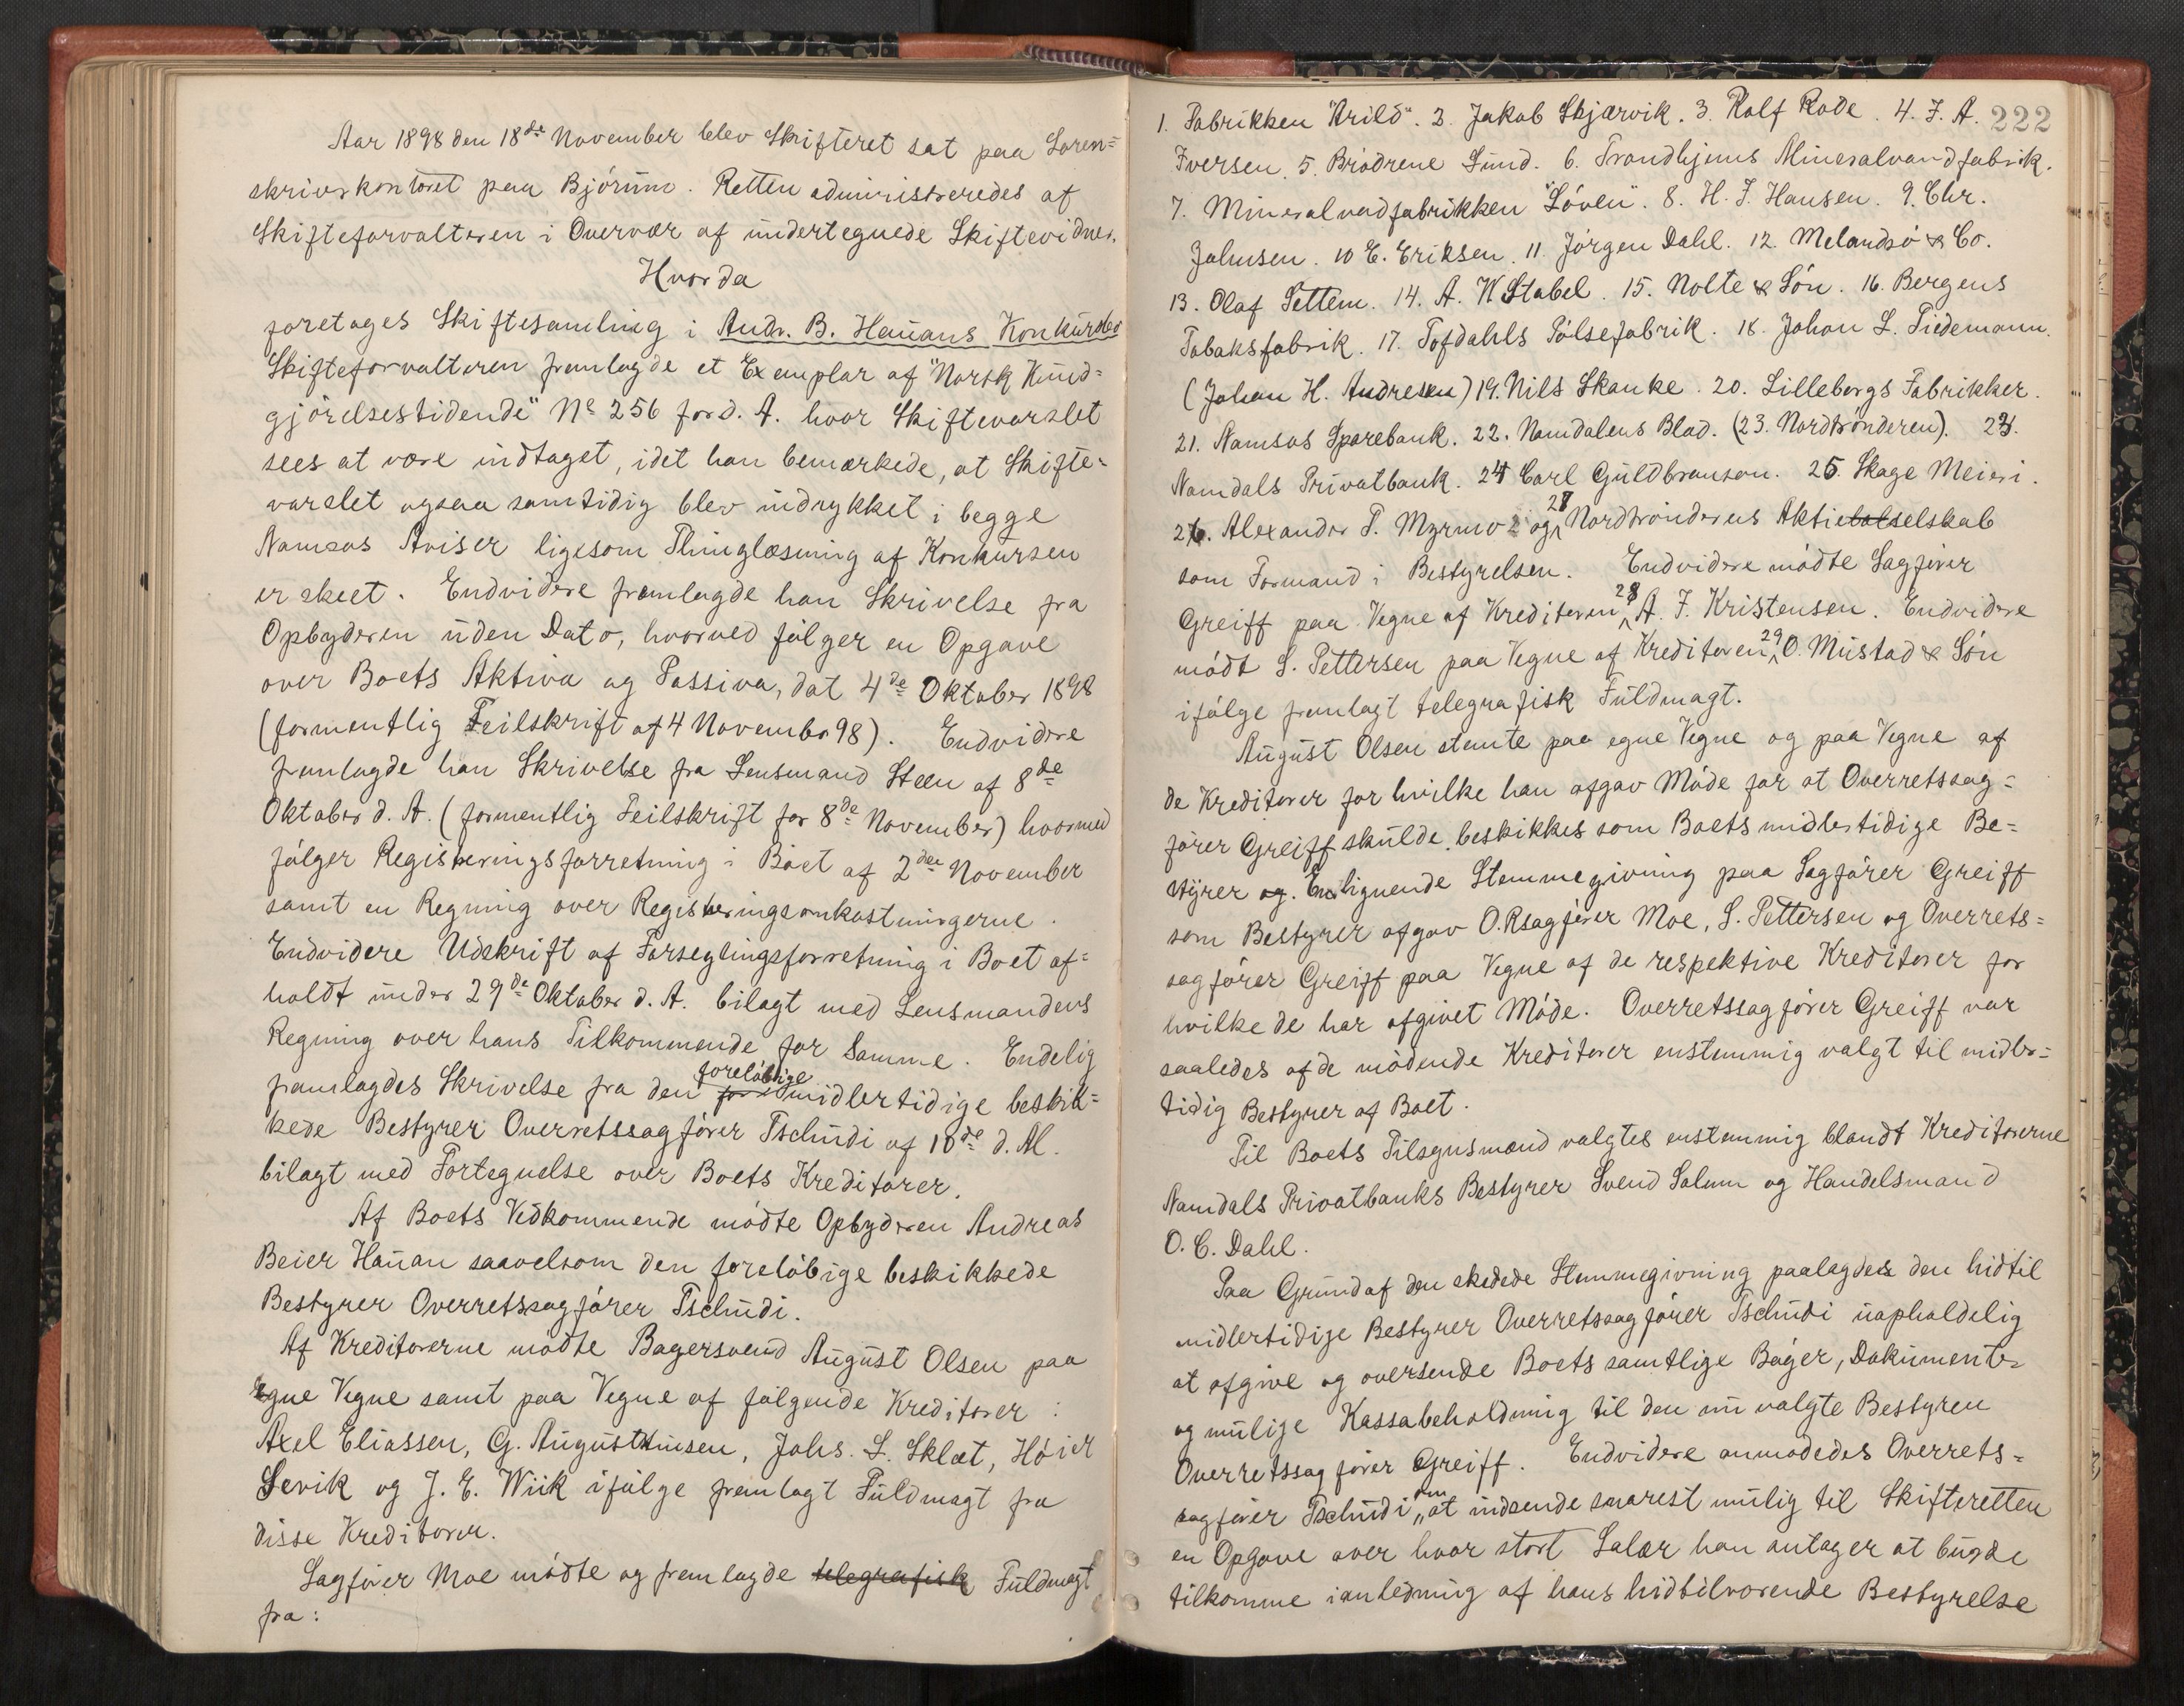 Aar 1898 den 18de November blev Skifteret sat paa Soren=
skriverkontoret paa Bjørum. Retten administreredes af
Skifteforvalteren i Overvær af undertegnede Skiftevidner.
Hvorda
foretoges Skiftesamling i Andr. B. Hauans Konkursbo
Skifteforvalteren fremlagde et Exemplar af "Norsk Kund=
gjørelsestidende" No 256 for d. A. hvor Skiftevarslet
sees at være indtaget, idet han bemærkede, at Skifte=
varslet ogsaa samtidig blev indrykket i begge
Namsos Aviser ligesom Thinglæsning af Konkursen
er skeet. Endvidere fremlagde han Skrivelse fra
Opbyderen uden Dato, hvorved følger en Opgave
over Boets Aktiva og Passiva, dat 4de Oktober 1898
(formentlig Feilskrift af 4 Novembr 98). Endvidere
fremlagde han Skrivelse fra Lensmand Steen af 8de
Oktober d. A. (formentlig Feilskrift for 8de November) hvormed
følger Registreringsforretning i Boet af 2den November
samt en Regning over Registreringsomkostningerne.
Endvidere Udskrift af Forseglingsforretning i Boet af=
holdt under 29de Oktober d. A. bilagt med Lensmandens
Regning over hans Tilkommende for Samme. Endelig
fremlagdes Skrivelse fra den foreløbige midlertidige beskik=
kede Bestyrer Overretssagfører Tschudi af 10de d. M.
bilagt med Fortegnelse over Boets Kreditorer.
Af Boets Vedkommende mødte Opbyderen Andreas
Beier Hauan saavelsom den foreløbige beskikkede
Bestyrer Overretssagfører Tschudi.
Af Kreditorerne mødte Bagersvend August Olsen paa
egne Vegne samt paa Vegne af følgende Kreditorer:
Axel Eliassen, G. Augustinusen, Johs. L. Sklæt, Høier
Sevik og J. E. Wiik ifølge fremlagt Fuldmagt fra
disse Kreditorer.
Sagfører Moe mødte og fremlagde telegrafisk Fuldmagt
fra:
222
1. Fabrikken "Arild". 2. Jakob Skjærvik. 3. Rolf Rode. 4. J. A.
Iversen. 5. Brødrene Lund. 6. Trondhjems Mineralvandfabrik.
7. Mineralvadfabrikken "Løven". 8. H. J. Hansen. 9. Chr.
Johnsen. 10 E. Eriksen. 11. Jørgen Dahl. 12. Melandsø & Co.
13. Olaf Settem. 14. A. K Stabel. 15. Nolte & Søn. 16. Bergens
Tobaksfabrik. 17. Tofdahls Pølsefabrik. 18. Johan L. Tiedemann
(Johan H. Andresen) 19. Nils Skanke. 20. Lilleborgs Fabrikker.
21. Namsos Sparebank. 22. Namdalens Blad. (23. Nordtrønderen). 23.
Namdals Privatbank. 24 Carl Guldbranson. 25. Skage Meieri.
26. Alexander P. Myrmo og 27 Nordtrønderens Aktieselskab
som Formand i Bestyrelsen. Endvidere mødte Sagfører
Greiff paa Vegne af Kreditoren 28 A. F. Kristensen. Endvidere
mødt S. Pettersen paa Vegne af Kreditoren 29 O. Mustad & Søn
ifølge fremlagt telegrafisk Fuldmagt.
August Olsen stemte paa egne Vegne og paa Vegne af
de Kreditorer for hvilke han afgav Møde for at Overretssag=
fører Greiff skulde beskikkes som Boets midlertidige Be=
styrer og. En lignende Stemmegivning paa Sagfører Greiff
som Bestyrer afgav O.Rsagfører Moe, S. Pettersen og Overrets=
sagfører Greiff paa Vegne af de respektive Kreditorer for
hvilke de har afgivet Møde. Overretssagfører Greiff var
saaledes af de mødende Kreditorer enstemmig valgt til midler=
tidig Bestyrer af Boet.
Til Boets Tilsynsmænd valgtes enstemmig blandt Kreditorerne
Namdals Privatbanks Bestyrer Svend Salum og Handelsmand
O. C. Dahl.
Paa Grund af den skedede Stemmegivning paalagdes den hidtil
midlertidige Bestyrer Overretssagfører Tschudi uopholdelig
at afgive og oversende Boets samtlige Bøger, Dokumenter
og mulige Kassabeholdning til den nu valgte Bestyrer
Overretssagfører Greiff. Endvidere anmodedes Overrets=
sagfører Tschudi om at indsende snarest mulig til Skifteretten
en Opgave over hvor stort Salær han antager at burde
tilkomme ianledning af hans hidtilværende Bestyrelse